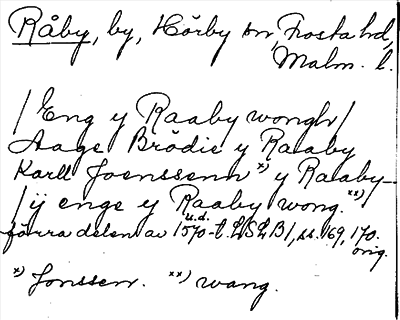 Råby, by, Hörby sn, Frosta hd,
Malm. l.
/Eng y Raaby wongh/
Aage Brödie y Raaby
Karll Joenssenn x) y Raaby
/ÿ enge y Raaby wong. xx)
u.d.
förra delen av 1570-t. LSLB1, ss. 169, 170.
orig.
x) Jonssen. xx) wang.